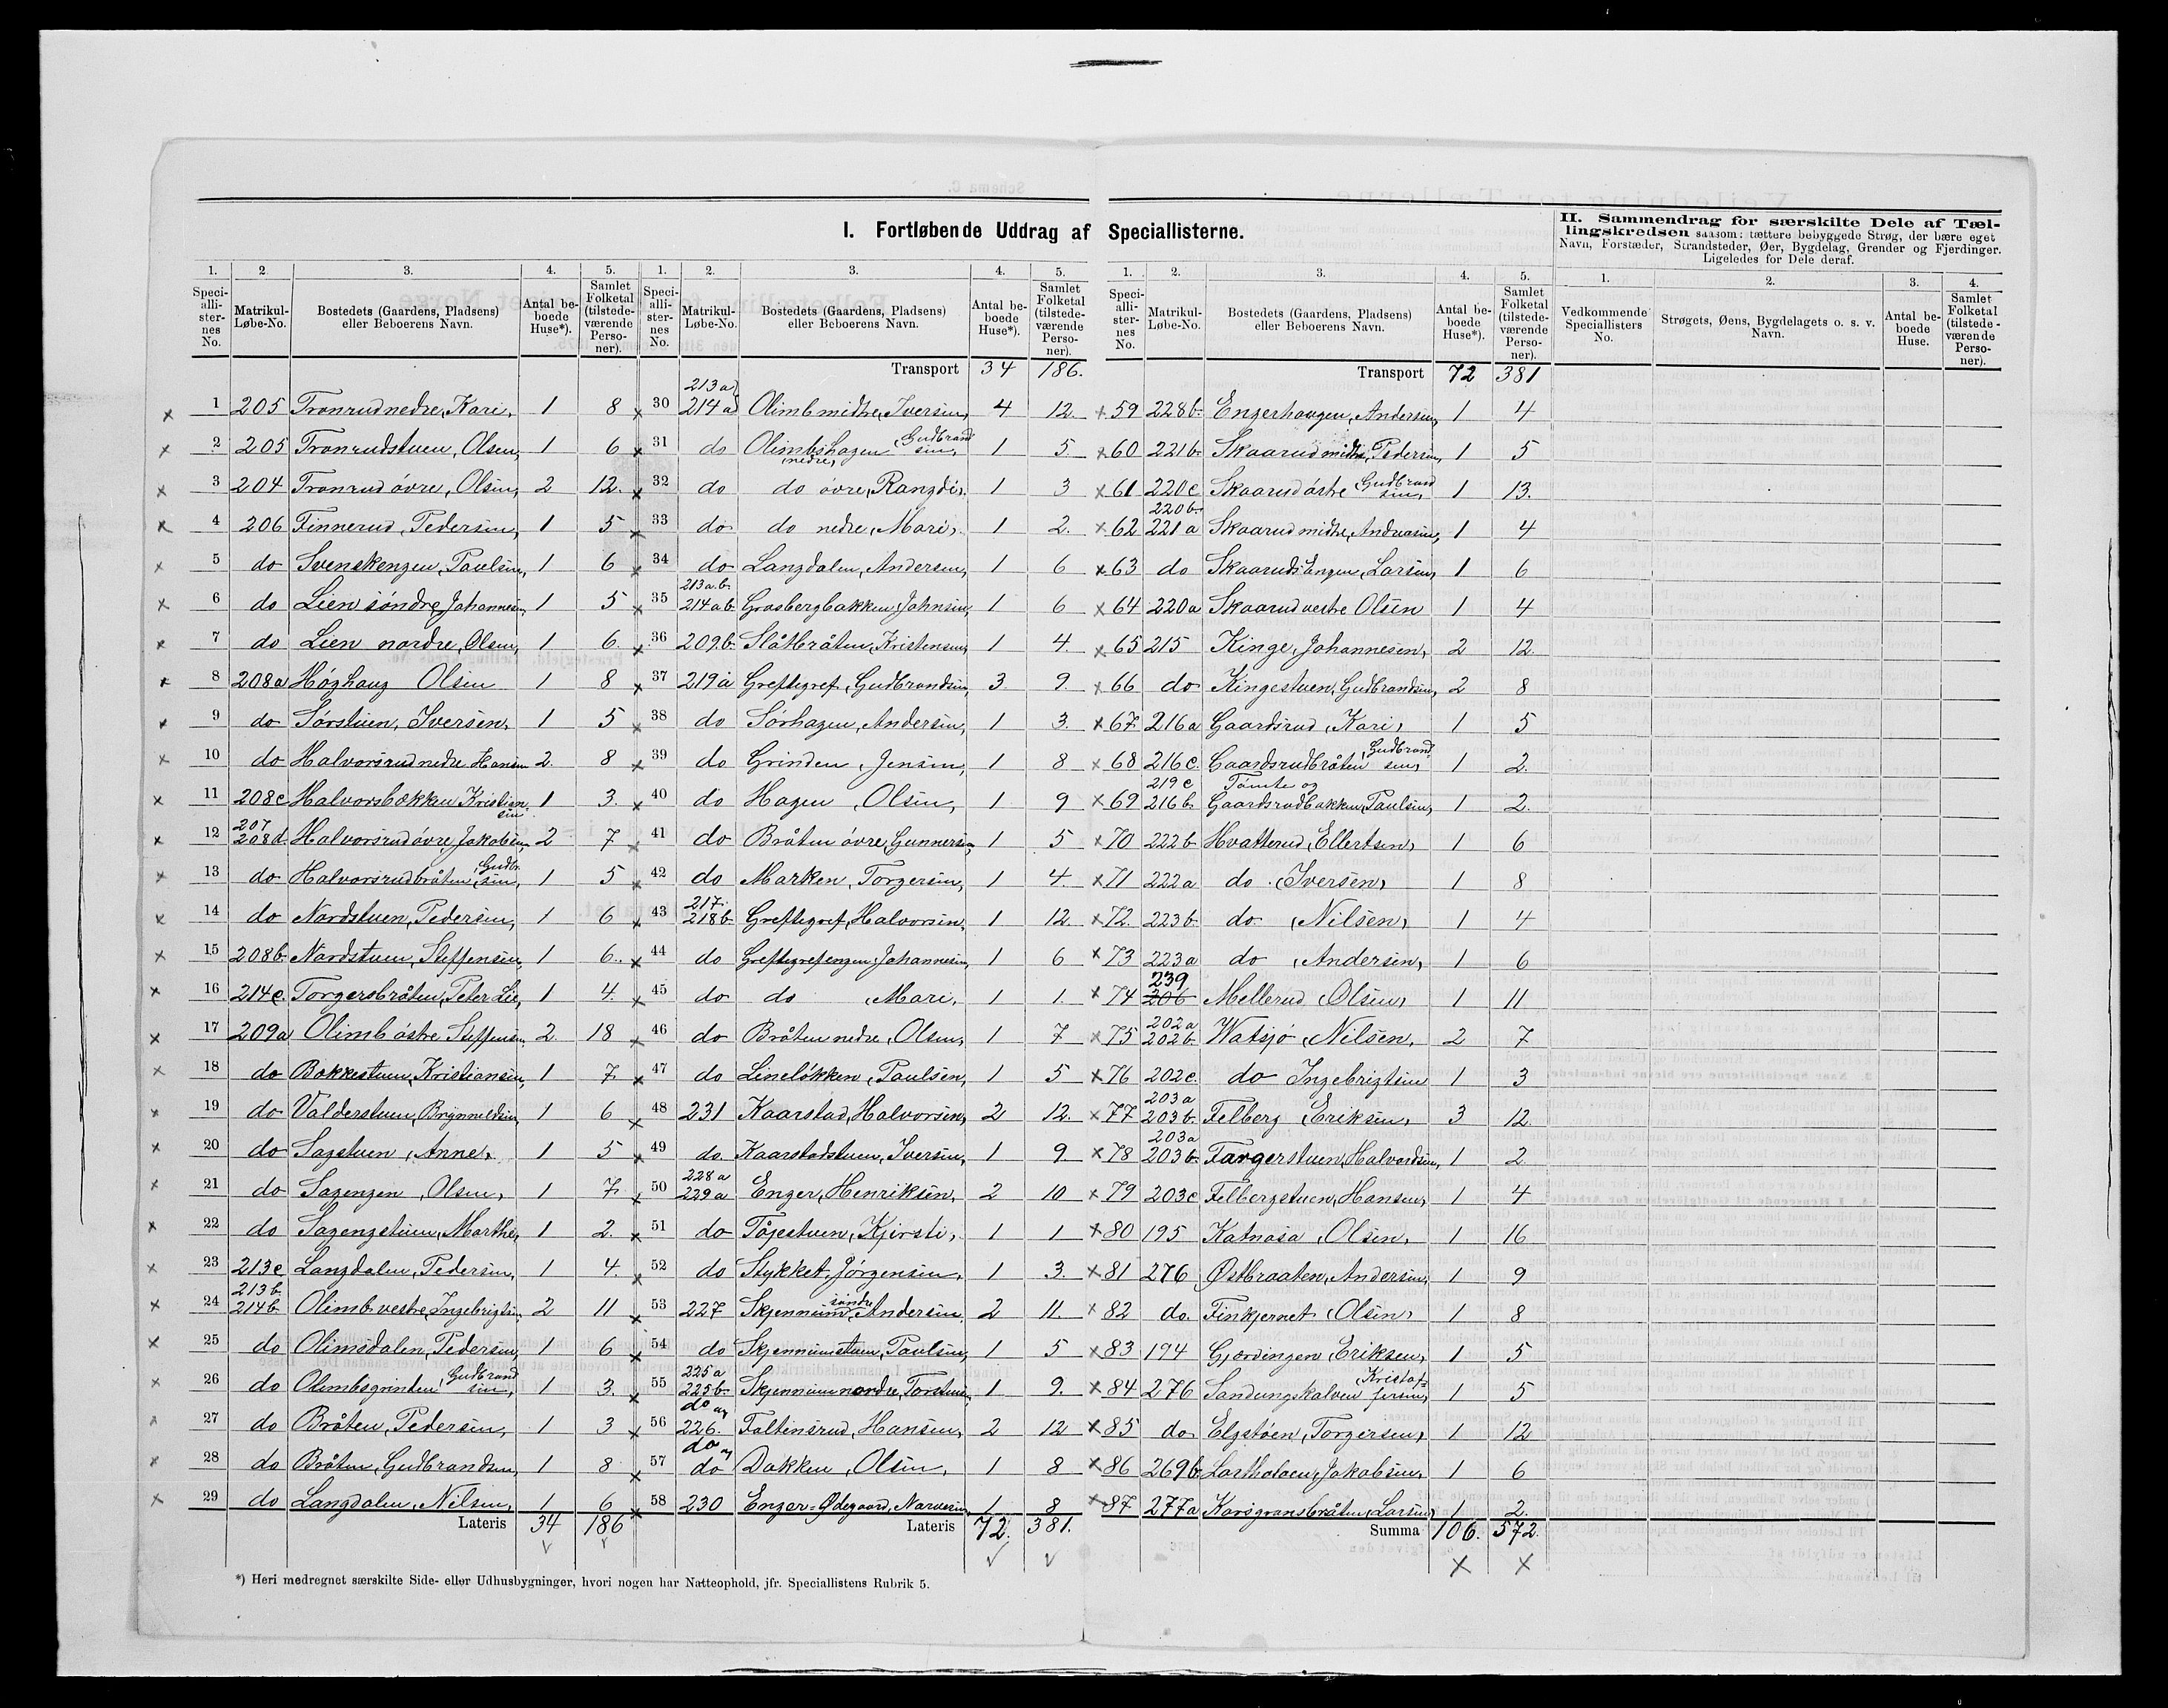 I. Fortløbende Uddrag af Speciallisterne.
II. Sammendrag for særskilte Dele af Tæl-
lingskredsen saasom: tættere bebyggede Strøg, der bære eget
Navn, Forstæder, Strandsteder, Øer, Bygdelag, Grender og Fjerdinger.
Ligeledes for Dele deraf.
1. 2. 3. 4. 5. 1. 2. 3. 4. 5. 1. 2. 3. 4. 5. 1. 2. 3. 4.
Speci-alli-ster-nes No. Matrikul-Løbe-No. Bostedets (Gaardens, Pladsens) eller Beboerens Navn. Antal be-boede Huse*). Samlet Folketal (tilstede-værende Perso-ner).
Speci-alli-ster-nes No. Matrikul-Løbe-No. Bostedets (Gaardens, Pladsens) eller Beboerens Navn. Antal be-boede Huse*). Samlet Folketal (tilstede-værende Perso-ner).
Speci-alli-ster-nes No. Matrikul-Løbe-No. Bostedets (Gaardens, Pladsens) eller Beboerens Navn. Antal be-boede Huse*). Samlet Folketal (tilstede-værende Perso-ner).
Vedkommende Speciallisters No. Strøgets, Øens, Bygdelagets o. s. v. Navn. Antal be-boede Huse. Samlet Folketal (tilstede-værende Perso-ner).
1 205 Tronrud nedre, Kari, 1 8
2 205 Tronrudstuen, Olsen, 1 6
3 204 Tronrud övre, Olsen, 2 12.
4 206 Finnerud, Pedersen, 1 5
5 do Svenskengen, Paulsen, 1 6
6 do Lien söndre, Johannesen, 1 5
7 do Lien nordre, Olsen, 1 6.
8 208a Höghaug Olsen 1 8
9 do Sörstuen, Iversen, 1 5
10 do Halvorsrud nedre Hansen 2. 8
11 208c Halvorsbakken Kristiansen 1 3.
12 207 208d. Halvorsrud övre, Jakobsen 2 7
13 do Halvorsrudbråten, Gudbr. sen, 1 5
14 do Nordstuen, Pedersen, 1 6
15 208b. Nordstuen, Steffensen, 1 6.
16 214c. Torgersbråten, Peter Lie, 1 4.
17 209a Olimb östre, Steffensen, 2. 18
18 do Bakkestuen, Kristiansen, 1 7
19 do Valderstuen, Brynnildsen, 1 6
20 do Sagstuen, Anne, 1 5
21 do Sagengen, Olsen, 1 7
22 do Sagengstuen, Marthe, 1 2.
23 213c Langdalen, Pedersen, 1 4.
24 213b. 214b Olimb vestre, Ingebrigtsen, 2 11
25 do Olimsdalen, Pedersen, 1 6
26 do Olimbsgrinden, Gudbrandsen, 1 3.
27 do Bråten, Pedersen, 1 3
28 do Bråten, Gudbrandsen, 1 8
29 do Langdalen, Nilsen, 1 6
Lateris 34 186
Transport 34 186.
30 213a 214a Olimb midtre, Iversen, 4 12.
31 do Olimbshagen nedre, Gudbrandsen, 1 5
32 do do övre, Rangdi, 1 3
33 do do nedre, Mari, 1 2.
34 do Langdalen, Andersen, 1 6
35 213a.b. 214a.b. Grasbergbakken, Johnsen, 1 6
36 209.b. Slåtbråten, Kristensen, 1 4.
37 219a Greftegref, Gudbrandsen, 3 9.
38 do Sörhagen, Andersen, 1 3.
39 do Grinden, Jensen, 1 8
40 do Hagen, Olsen, 1 9
41 do Bråten övre, Gunnersen, 1 5
42 do Marken, Torgersen, 1 4.
43 217. 218b. Greftegref, Halvorsen, 1 12.
44 do Greftegrefengen, Johannesen, 1 6
45 do do Mari, 1 1.
46 do Bråten nedre, Olsen, 1 7
47 do Linelökken, Paulsen, 1 5
48 231 Kaarstad, Halvorsen, 2 12.
49 do. Kaarstadstuen, Iversen, 1 9
50 228a 229a Enger, Henriksen, 2 10
51 do Töjestuen, Kjersti, 1 1
52 do Stykket, Jörgensen, 1 3.
53 227 Skjennum söndre, Andersen 2 11.
54 do Skjennumstuen, Paulsen, 1 5
55 225a 225b. Skjennum nordre, Torstensen 1 9.
56 do og 226. Faltinsrud, Hansen, 2 12
57 do og do Dakken, Olsen, 1 8
58 230 Enger=Ødegaard, Narvesen, 1 8
Lateris 72. 381.
Transport 72 381
59 228b. Engerhaugen, Andersen, 1 4
60 221b. Skaarud midtre, Pedersen, 1 5
61 220c Skaarud östre Gudbrandsen, 1 13.
62 220b. 221a Skaarud midtre, Andreasen, 1 4
63 do Skaaruds Engen, Larsen, 1 6
64 220a Skaarud vestre Olsen 1 4
65 215 Kinge, Johannesen, 2 12
66 do Kingestuen, Gudbrandsen, 2 8
67. 216a Gaardsrud, Kari, 1 5
68 216c. Gaardsrudbråten, Gudbrandsen, 1 2.
69 219c 216b. Tömte og Gaardsrudbakken, Paulsen, 1 2.
70 222b Hvatterud, Ellertsen, 1 6
71 222a do. Iversen, 1 8
72. 223b. do. Nilsen, 1 4
73 223a do Andersen, 1 6
74 239 206 Mellerud, Olsen, 1 11
75 202a 202b. Watsjö, Nilsen, 2 7
76 202c. do Ingebrigtsen 1 3
77 203a 203b. Felberg, Eriksen, 3 12.
78 203a 203b. Favgerstuen, Halvordsen, 1 2.
79 203c Felbergstuen, Hansen, 1 4
80 195 Katnosa, Olsen, 1 16
81 276 Østbraaten, Andersen, 1 9
82 do. Finkjernet, Olsen, 1 8
83 194 Gjerdingen, Eriksen, 1 5
84 276 Sandungskalven, Kristoffersen, 1 5
85 do Elgstöen, Torgersen, 1 12
86 269b. Jakobsen, 1 6
87 277a Larsen, 1 2.
Summa 106. 572.
*) Heri medregnet særskilte Side- eller Udhusbygninger, hvori nogen har Natteophold, jfr. Speciallistens Rubrik 5.